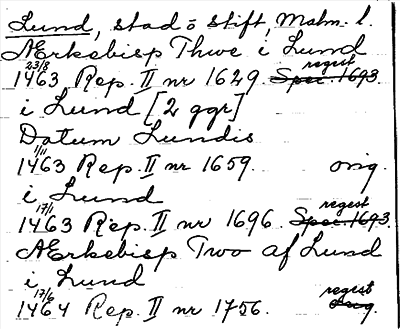 Lund, stad o stift, Malm. l.
Ærkebisp Thwe i Lund
23/8 regest
1463 Rep. II nr 1629. Spec. 1693
i Lund [2 ggr]
Datum Lundis
1/11
1463 Rep. II nr 1659. orig.
i Lund
17/1 regest
1463 Rep. II nr 1696. Spec. 1693.
Ærkebisp Two af Lund
i Lund
17/6 regest
1464 Rep. II nr 1756. orig.